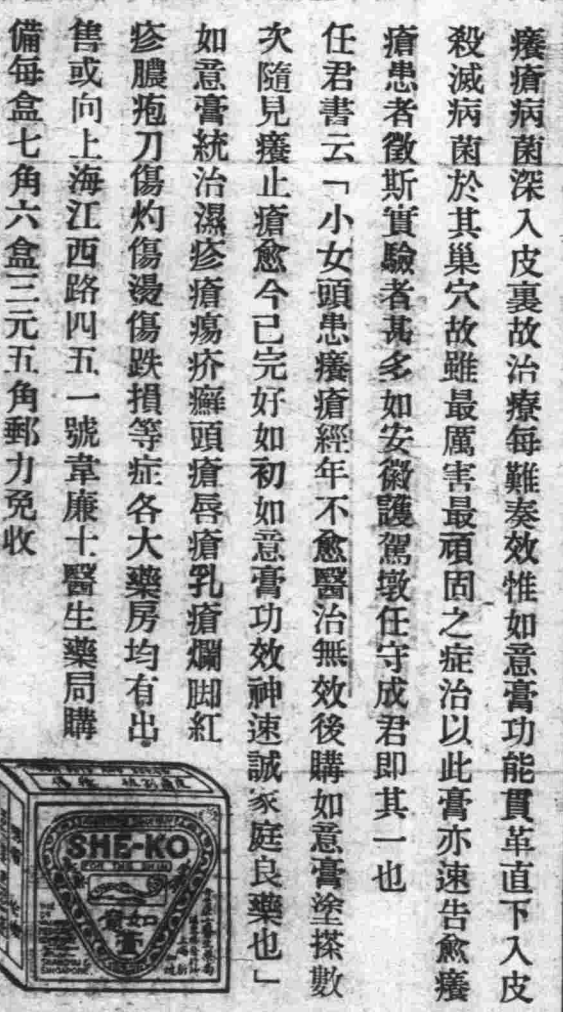 癢瘡病菌深入皮裏故治療每難奏效惟如意膏功能貫革直下入皮
殺滅病菌於其巢穴故雖最厲害最頑固之症治以此膏亦速告愈癢
瘡患者徵斯實驗者甚多如安徽護駕墩任守成君即其一也
任君書云「小女頭患癢瘡經年不愈醫治無效後購如意膏塗搽數
次隨見癢止瘡愈今已完好如初如意膏功效神速誠家庭良藥也」
如意膏統治濕疹瘡瘍疥癬頭瘡唇瘡乳瘡爛脚紅
疹膿疱刀傷灼傷燙傷跌損等症各大藥房均有出
售或向上海江西路四五一號韋廉士醫生藥局購
備每盒七角六盒三元五角郵力免收
SHE-KO
FOR THE SKIN
如意膏
SINGAPORE